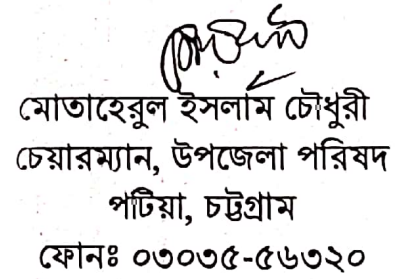 মোতাহেরুল ইসলাম চৌধুরী
চেয়ারম্যান, উপজেলা পরিষদ
পটিয়া, চট্টগ্রাম
ফোনঃ ০৩০৩৫-৫৬৩২০